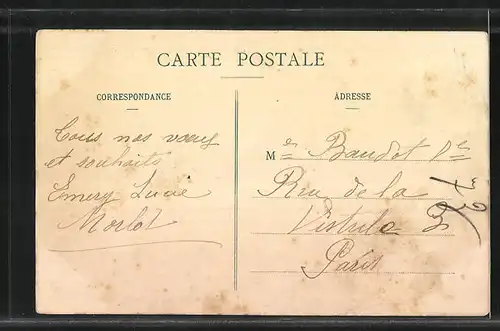 CARTE POSTALE
CORRESPONDANCE
Tous nos voeux
et souhaits
Emery Lucie
Morlot
ADRESSE
M Baudot
Rue de la
Vistule
Paris